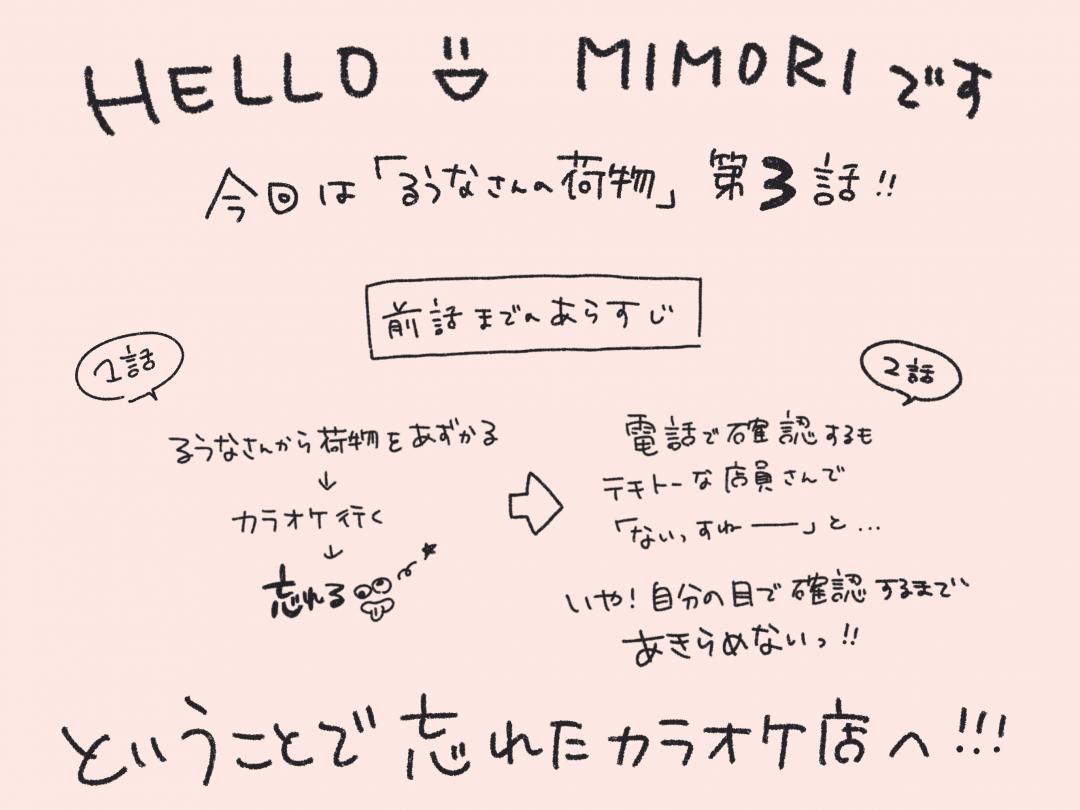 HELLO MIMORIです
今回は「るうなさんの荷物」第3話!!
前話までのあらすじ
1話
るうなさんから荷物をあずかる
↓
カラオケ行く
↓
忘れる
2話
電話で確認するも
テキトーな店員さんで
「ないっすねー」と…
いや!自分の目で確認するまで
あきらめないっ!!
ということで忘れたカラオケ店へ!!!